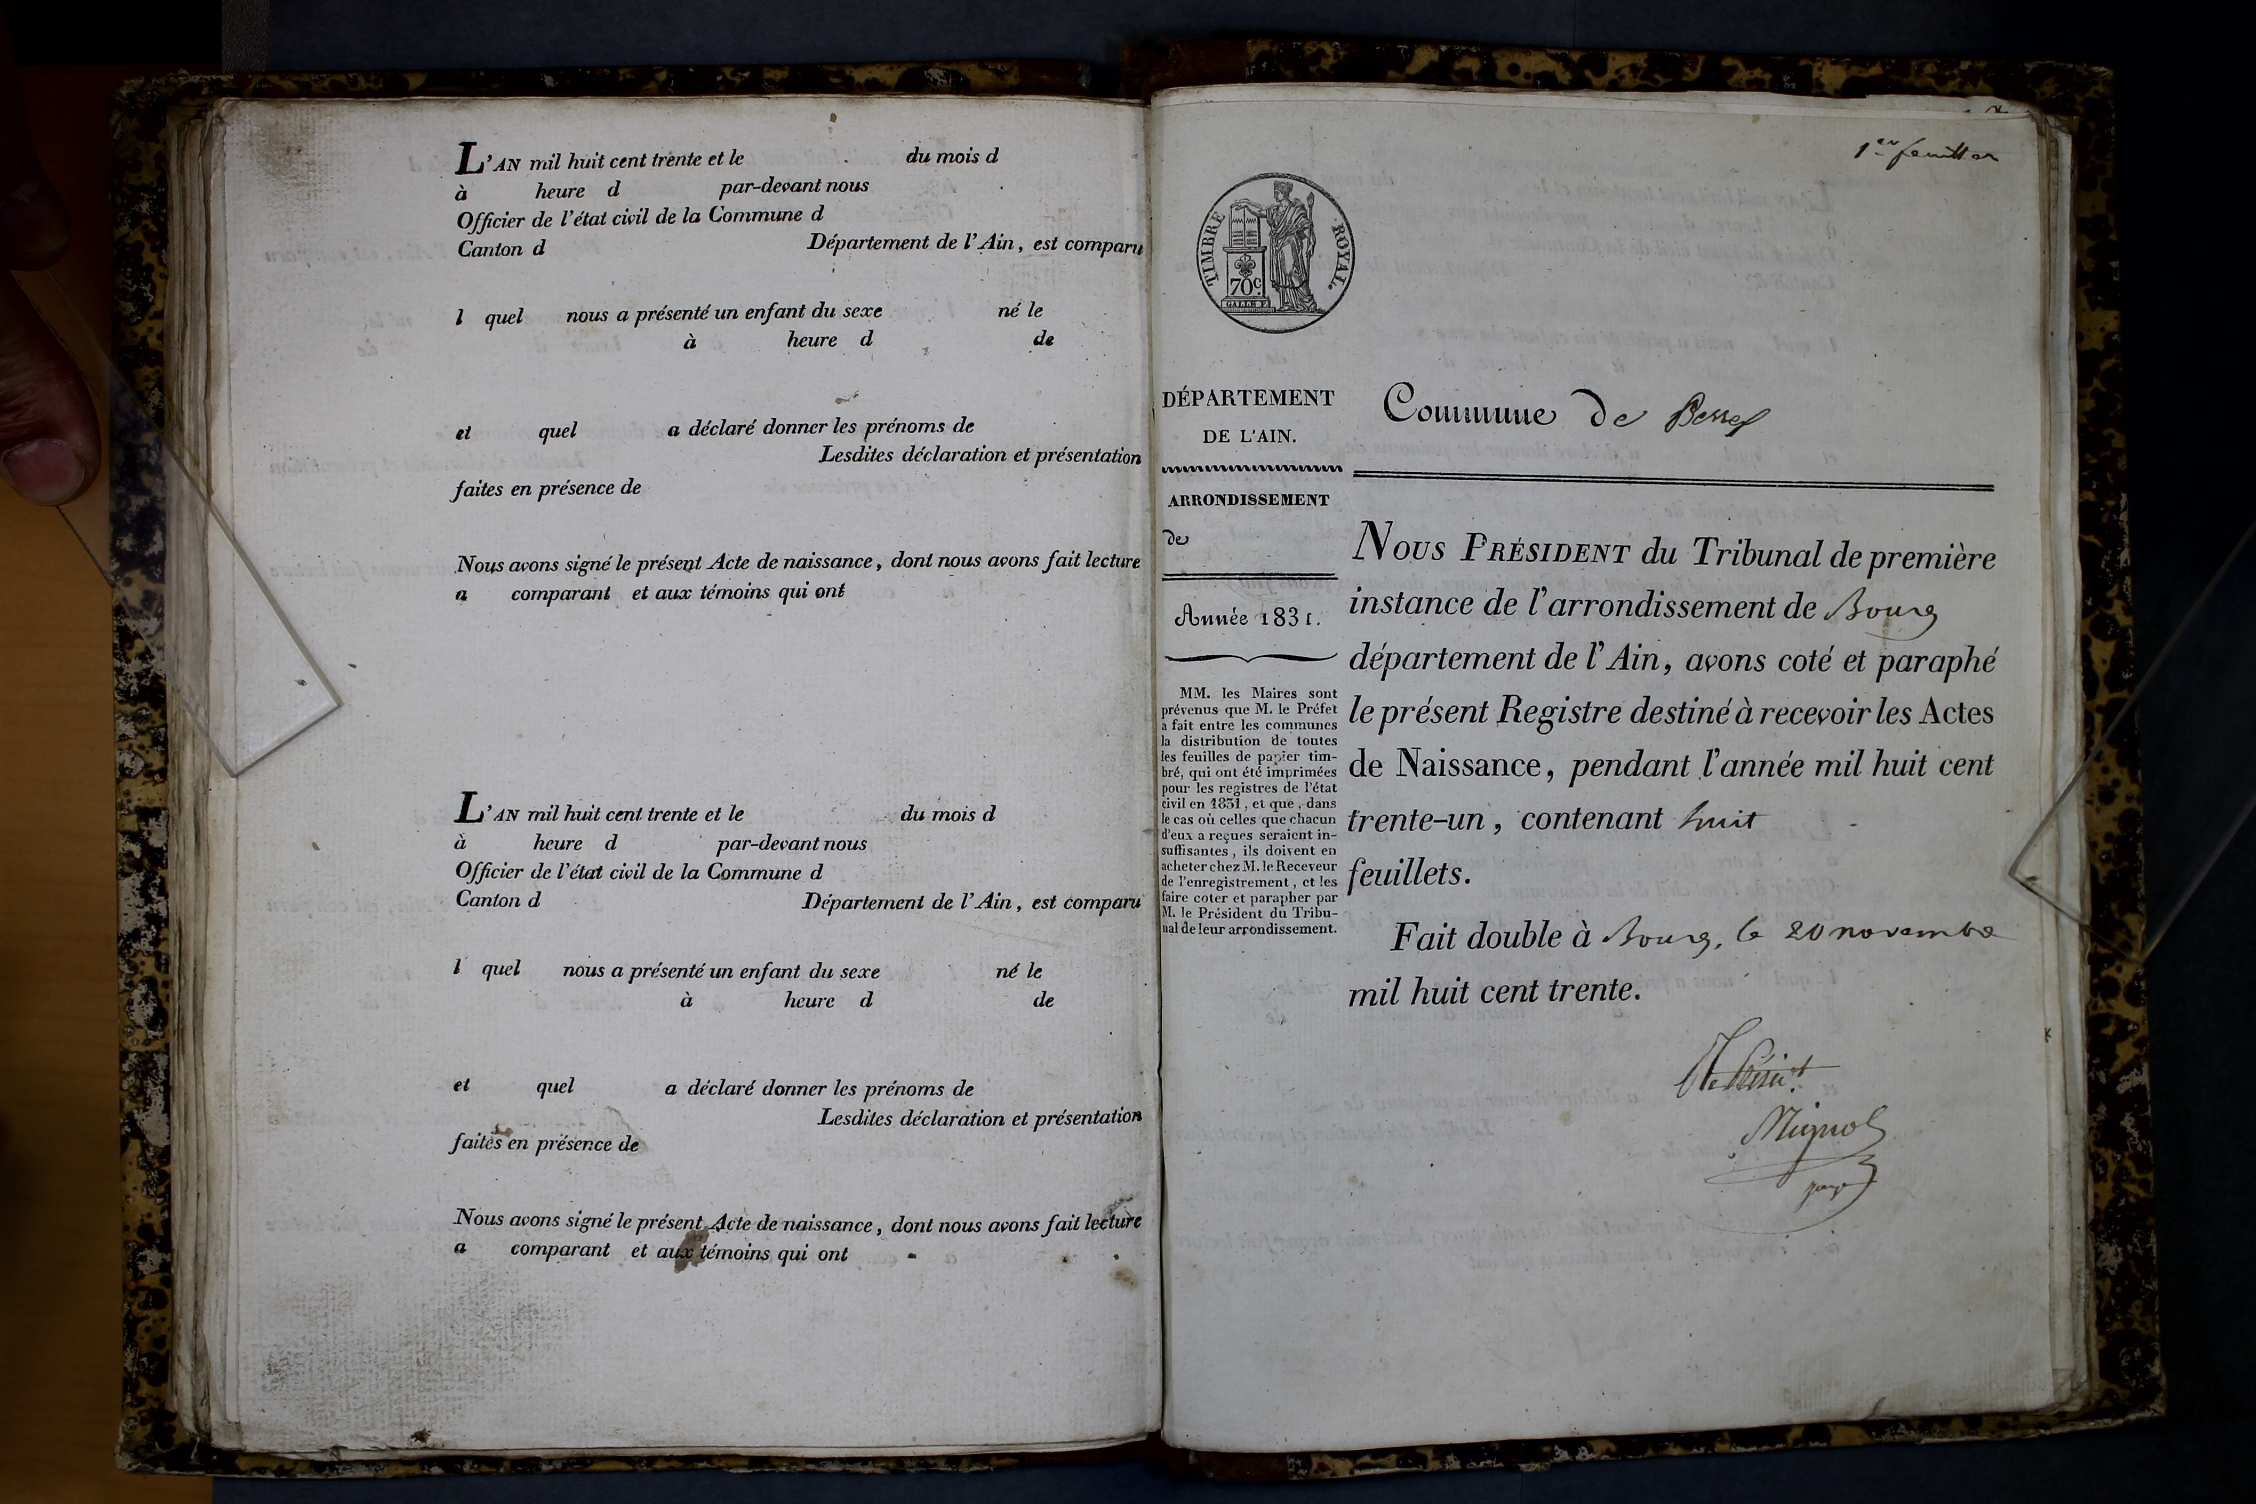 L'AN mil huit cent trente et le du mois d
à heure d par-devant nous
Officier de l'état civil de la Commune d
Canton d Département de l'Ain, est comparu
l quel nous a présenté un enfant du sexe né le
à heure d de
et quel a déclaré donner les prénoms de
Lesdites déclaration et présentation
faites en présence de
Nous avons signé le présent Acte de naissance, dont nous avons fait lecture
a comparant et aux témoins qui ont
L'AN mil huit cent trente et le du mois d
à heure d par-devant nous
Officier de l'état civil de la Commune d
Canton d Département de l'Ain, est comparu
l quel nous a présenté un enfant du sexe né le
à heure d de
et quel a déclaré donner les prénoms de
Lesdites déclaration et présentation
faites en présence de
Nous avons signé le présent Acte de naissance, dont nous avons fait lecture
a comparant et aux témoins qui ont
1er feuillet
TIMBRE ROYAL.
70c
DÉPARTEMENT
DE L'AIN.
ARRONDISSEMENT
de
Année 1831.
MM. les Maires sont
prévenus que M. le Préfet
a fait entre les communes
la distribution de toutes
les feuilles de papier tim-
bré, qui ont été imprimées
pour les registres de l'état
civil en 1831, et que, dans
le cas où celles que chacun
d'eux a reçues seraient in-
suffisantes, ils doivent en
acheter chez M. le Receveur
de l'enregistrement, et les
faire coter et parapher par
M. le Président du Tribu-
nal de leur arrondissement.
Commune de
NOUS PRÉSIDENT du Tribunal de première
instance de l'arrondissement de Bourg
département de l'Ain, avons coté et paraphé
le présent Registre destiné à recevoir les Actes
de Naissance, pendant l'année mil huit cent
trente-un, contenant huit
feuillets.
Fait double à Bourg, le 20 novembre
mil huit cent trente.